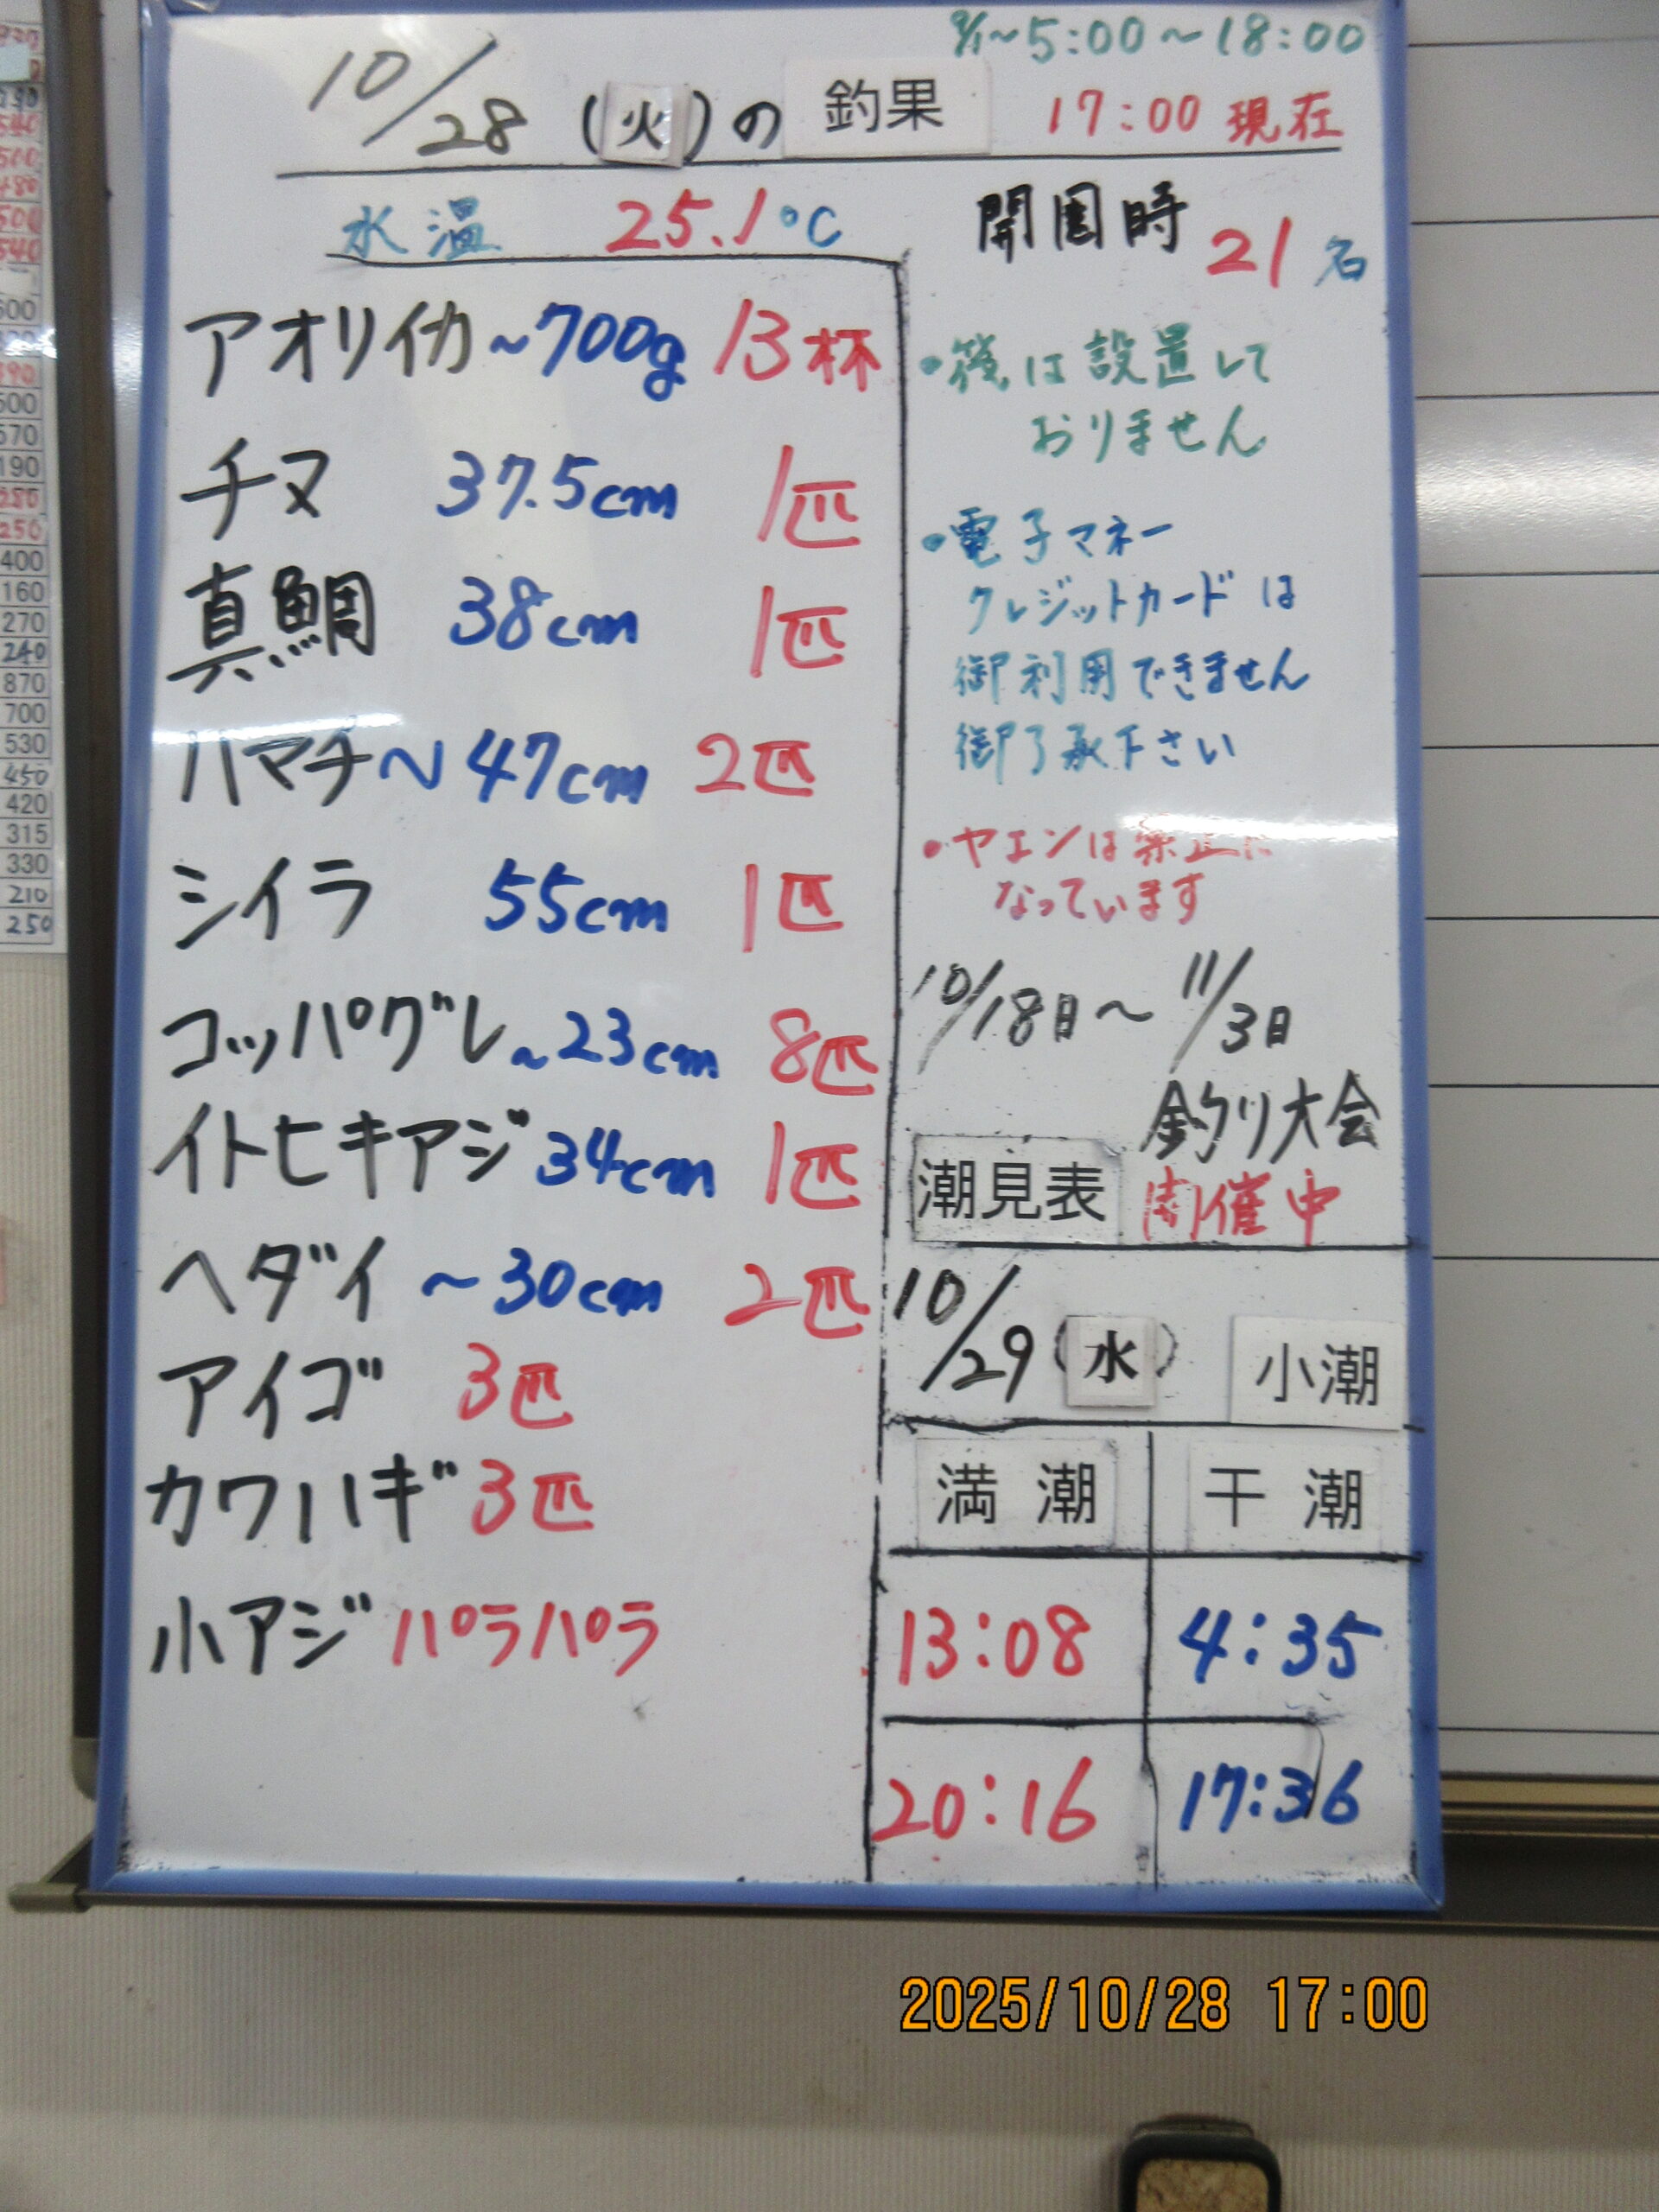 9/1～5:00～18:00
10/28 (火)の 釣果 17:00 現在
水温 25.1℃
開園時 21名
アオリイカ ~700g 13杯
チヌ 37.5cm 1匹
真鯛 38cm 1匹
ハマチ～47cm 2匹
シイラ 55cm 1匹
コッパグレ~23cm 8匹
イトヒキアジ 34cm 1匹
ヘダイ ～30cm 2匹
アイゴ 3匹
カワハギ 3匹
小アジ パラパラ
は設置して
おりません
・電子マネー
クレジットカードは
御利用できません
御了承下さい
・ヤエンは禁止に
なっています
10/18日～11/3日
釣り大会
開催中
潮見表
10/29 (水) 小潮
満潮 干潮
13:08 4:35
20:16 17:36
2025/10/28 17:00
400
160
270
240
870
700
530
450
420
315
330
210
250